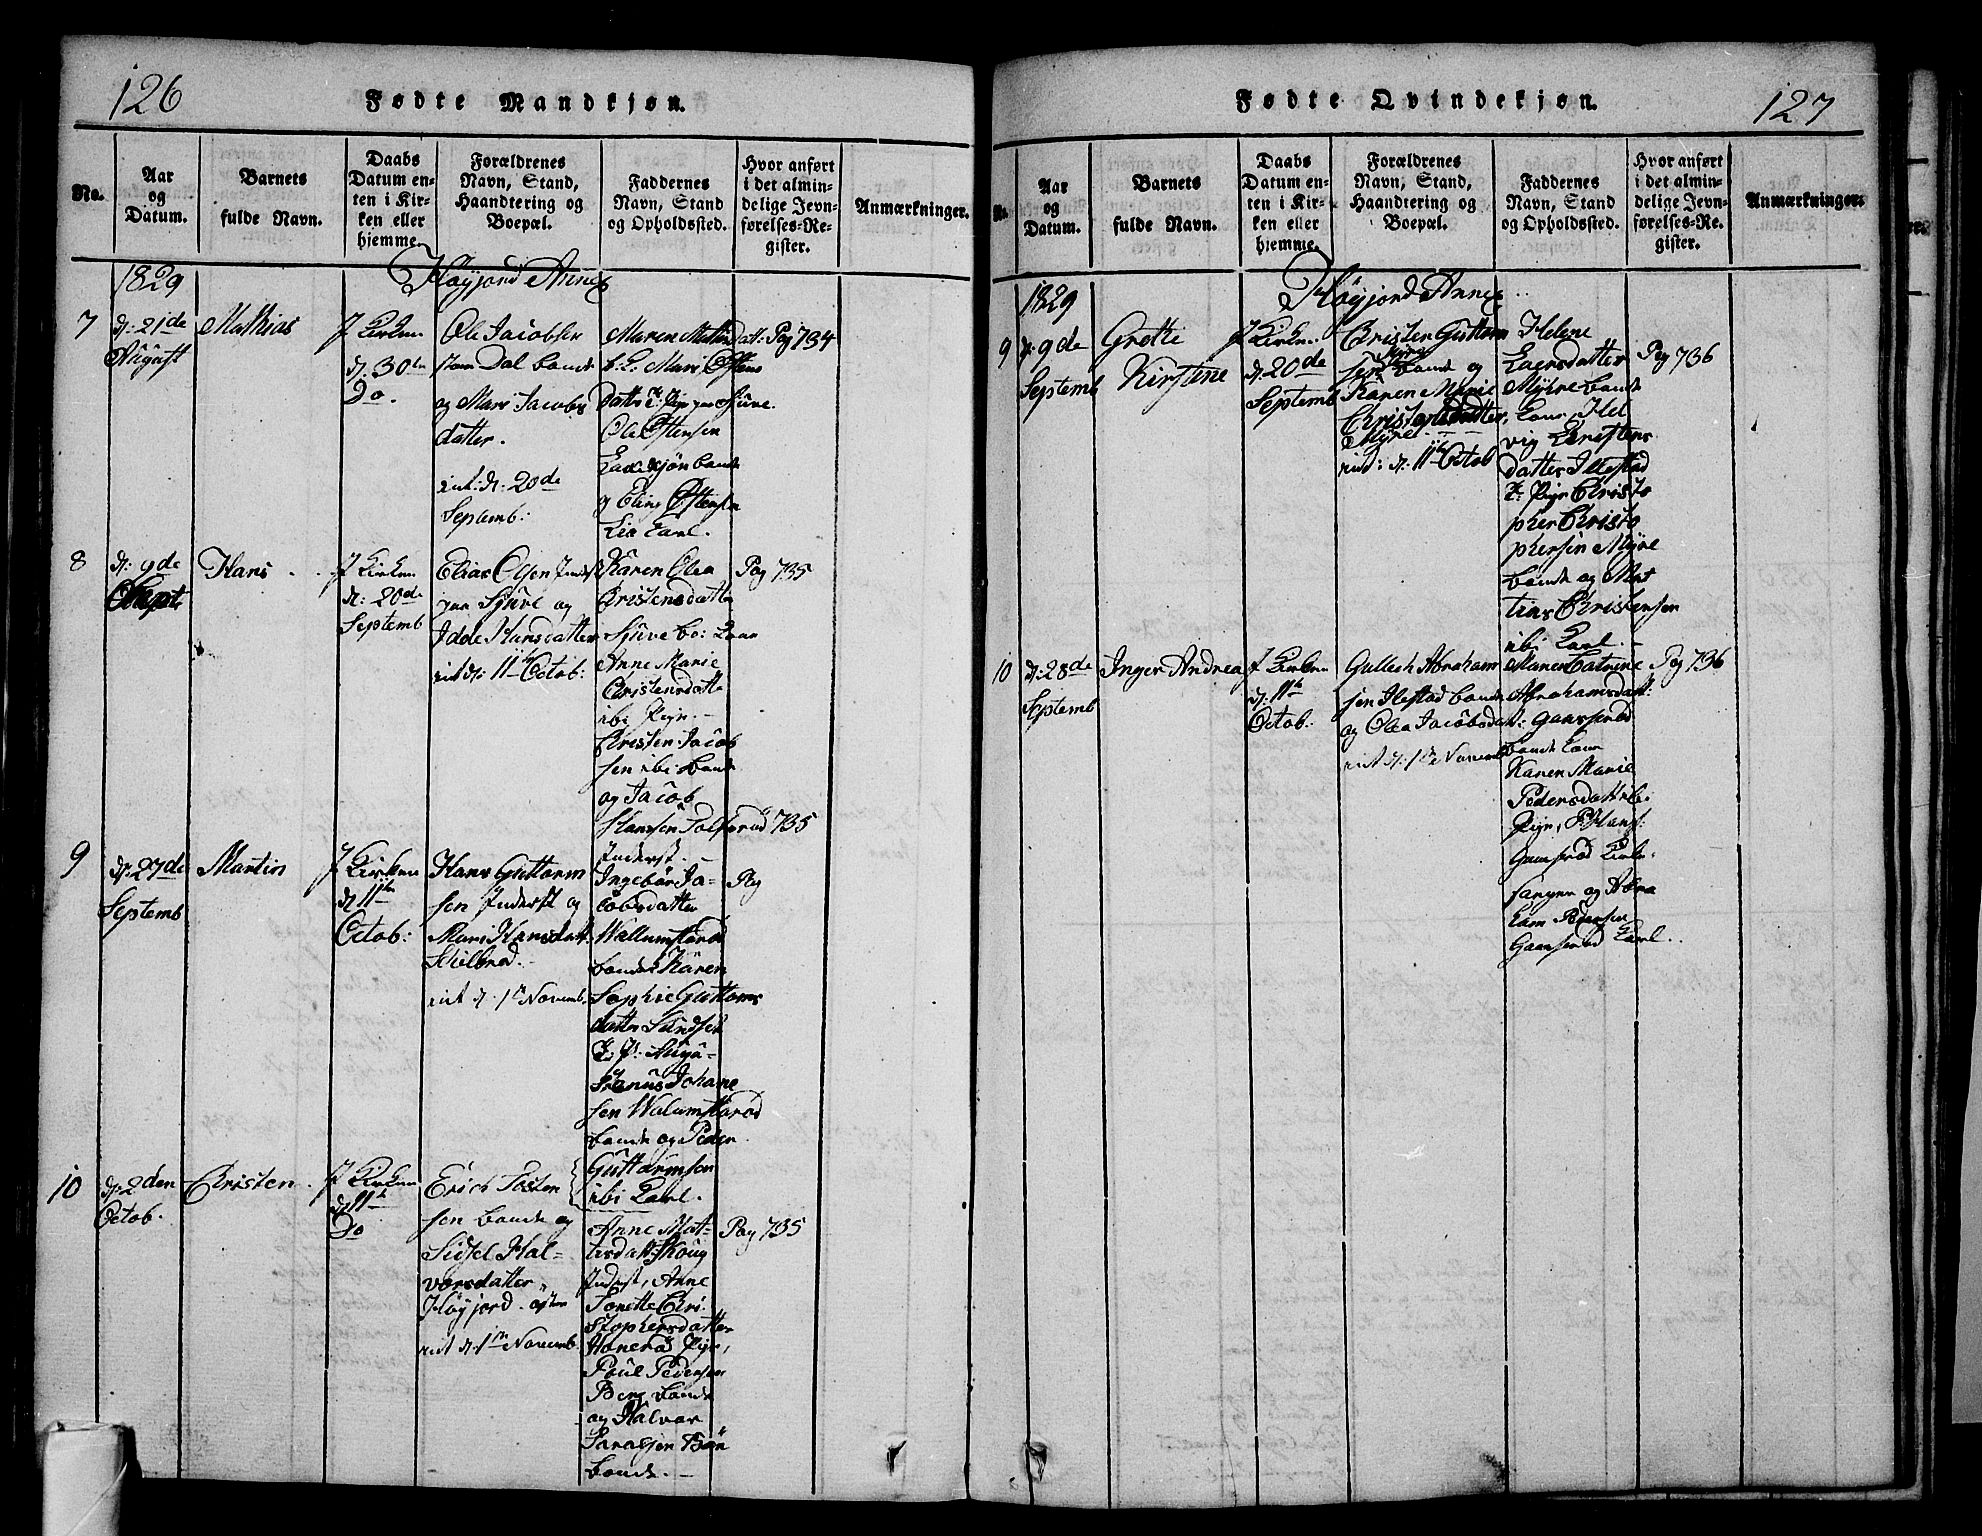 126
Fødte Mandkjøn.
No.
Aar
og
Datum.
Barnets
fulde Navn.
Daabs
Datum en-
ten i Kir-
ken eller
hjemme.
Forældrenes
Navn, Stand,
Haandtering og
Boepæl.
Faddernes
Navn, Stand
og Opholdssted.
Hvor anført
i det almin-
delige Jevn-
førelses-Re-
gister.
Anmærkninger.
1829
Høyjord Annex
7
d: 21de
August
Mathias
J Kirken
d. 30te
Do.
Ole Jacobsen
Dal bonde
og Mari Jacobs
datter.
int: d: 20de
Septemb:
Maren
Mari Ostens
datt
Ole Ostensen
bonde
og Eling Ostensen
Lie Karl.
Pag 734
8
d: 9de
Sept.
Hans
J Kirken
d: 20de
Septemb
Elias Olsen Inderst
Sjuve og
Idde Hansdatter
int d: 11te Octob:
Karen Olea
Christensdatter
Sjuve bo: Kone
Anne Marie
Christensdatte
ibi Pige.
Christen Jacob
sen ibi bonde
og Jacob
Hanssen Tolfsrød
Inderst.
Pag 735
735
9
d: 27de
Septemb
Martin
J Kirken
d 11te
Octob:
Hans Guttorm
sen Inderst og
Mari Hansdatt.
int d. 1te Novemb.
Ingebor Ja-
cobsdatter
Wallumsrød
bonde Karen
Sophie Guttorms
datter
Johane
sen
bonde og Peder
Guttormsen
ibi Karl.
Pag
10
d: 2den
Octob.
Christen
J Kirken
d 11te
Do
Erich Tosten
sen bonde og
Sidsel Hal-
vorsdatter
Høyjord
int d. 1te Novemb
Anne Mat-
tisdatt. Skoug
Inderst, Anne
Tonette Chri
stophersdatter
Honerød Pige,
Poul Pedersen
Berg bonde
og Halvor
bonde.
Pag 735
127
Fødte Qvindekjøn.
No.
Aar
og
Datum.
Barnets
fulde Navn.
Daabs
Datum en-
ten i Kir-
ken eller
hjemme.
Forældrenes
Navn, Stand,
Haandtering og
Boepæl.
Faddernes
Navn, Stand
og Opholdssted.
Hvor anført
i det almin-
delige Jevn-
førelses-Re-
gister.
Anmærkninger.
1829
Høyjord Annex
9
d: 9de
Septemb
Grette
Kirstine
J Kirken
d: 20de
Septemb
Christen Guttorm
Myre
sen bonde og
Karen Marie
Christophersdatter,
Myre
int: d: 11te Octob
Helene
Larsdatter
Myhre bonde
Kone, Hel
vig Christens
datter Illestad
Pige Christo
pher Christo
phersen Myre
bonde og Mat
tias Christensen
ibi Karl.
Pag 736
10
d: 28de
Septemb
Inger Andrea
J Kirken
d: 11te
Octob:
Gullech Abraham
sen Ilestad bonde
og Olea Jacobsdat
int d: 1te Novemb
Maren Catrine
Abrahamsdatt:
Gaasserød
bonde Kone
Karen Marie
Pedersdatt ibi
Pige,
Gaaserød
og Abra
ham Pedersen
Gaaserød Karl.
Pag 736